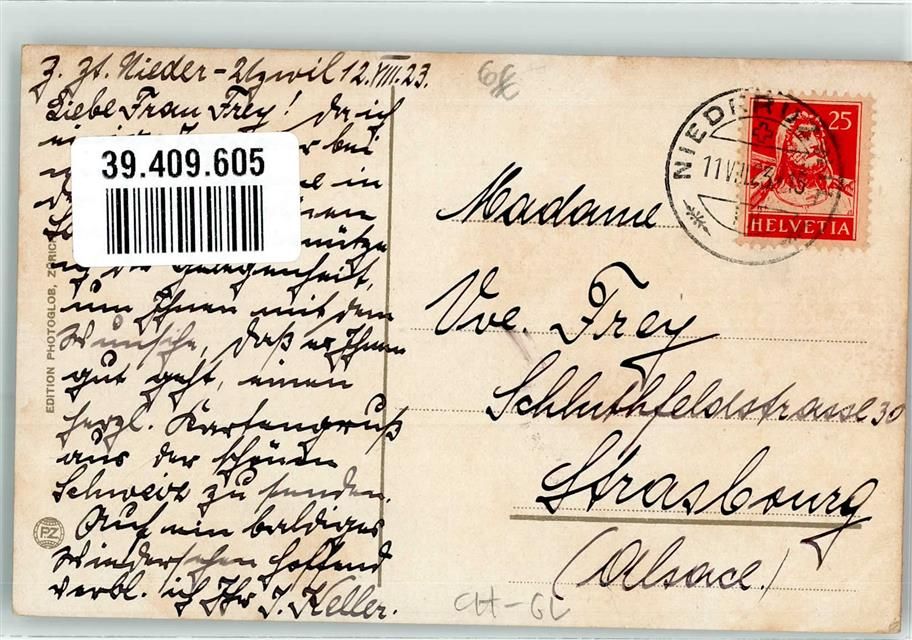 Z. Zt. Nieder-Uzwil 12.VIII.23.
Liebe Frau Frey! Da ich
bei
in
der Gelegenheit,
um Ihnen mit dem
Wunsche, daß es Ihnen
gut geht, einen
herzl. Kartengruß
aus der schönen
Schweiz zu senden.
Auf ein baldiges
Wiedersehen hoffend
verbl. ich Ihr J. Keller.
39.409.605
EDITION PHOTOGLOB, ZÜRICH
PZ
NIEDERUZWIL
11.VIII.23
25
HELVETIA
Madame
Vve. Frey
Schluthfeldstrasse 30
Strasbourg
(Alsace.)
CH-GL